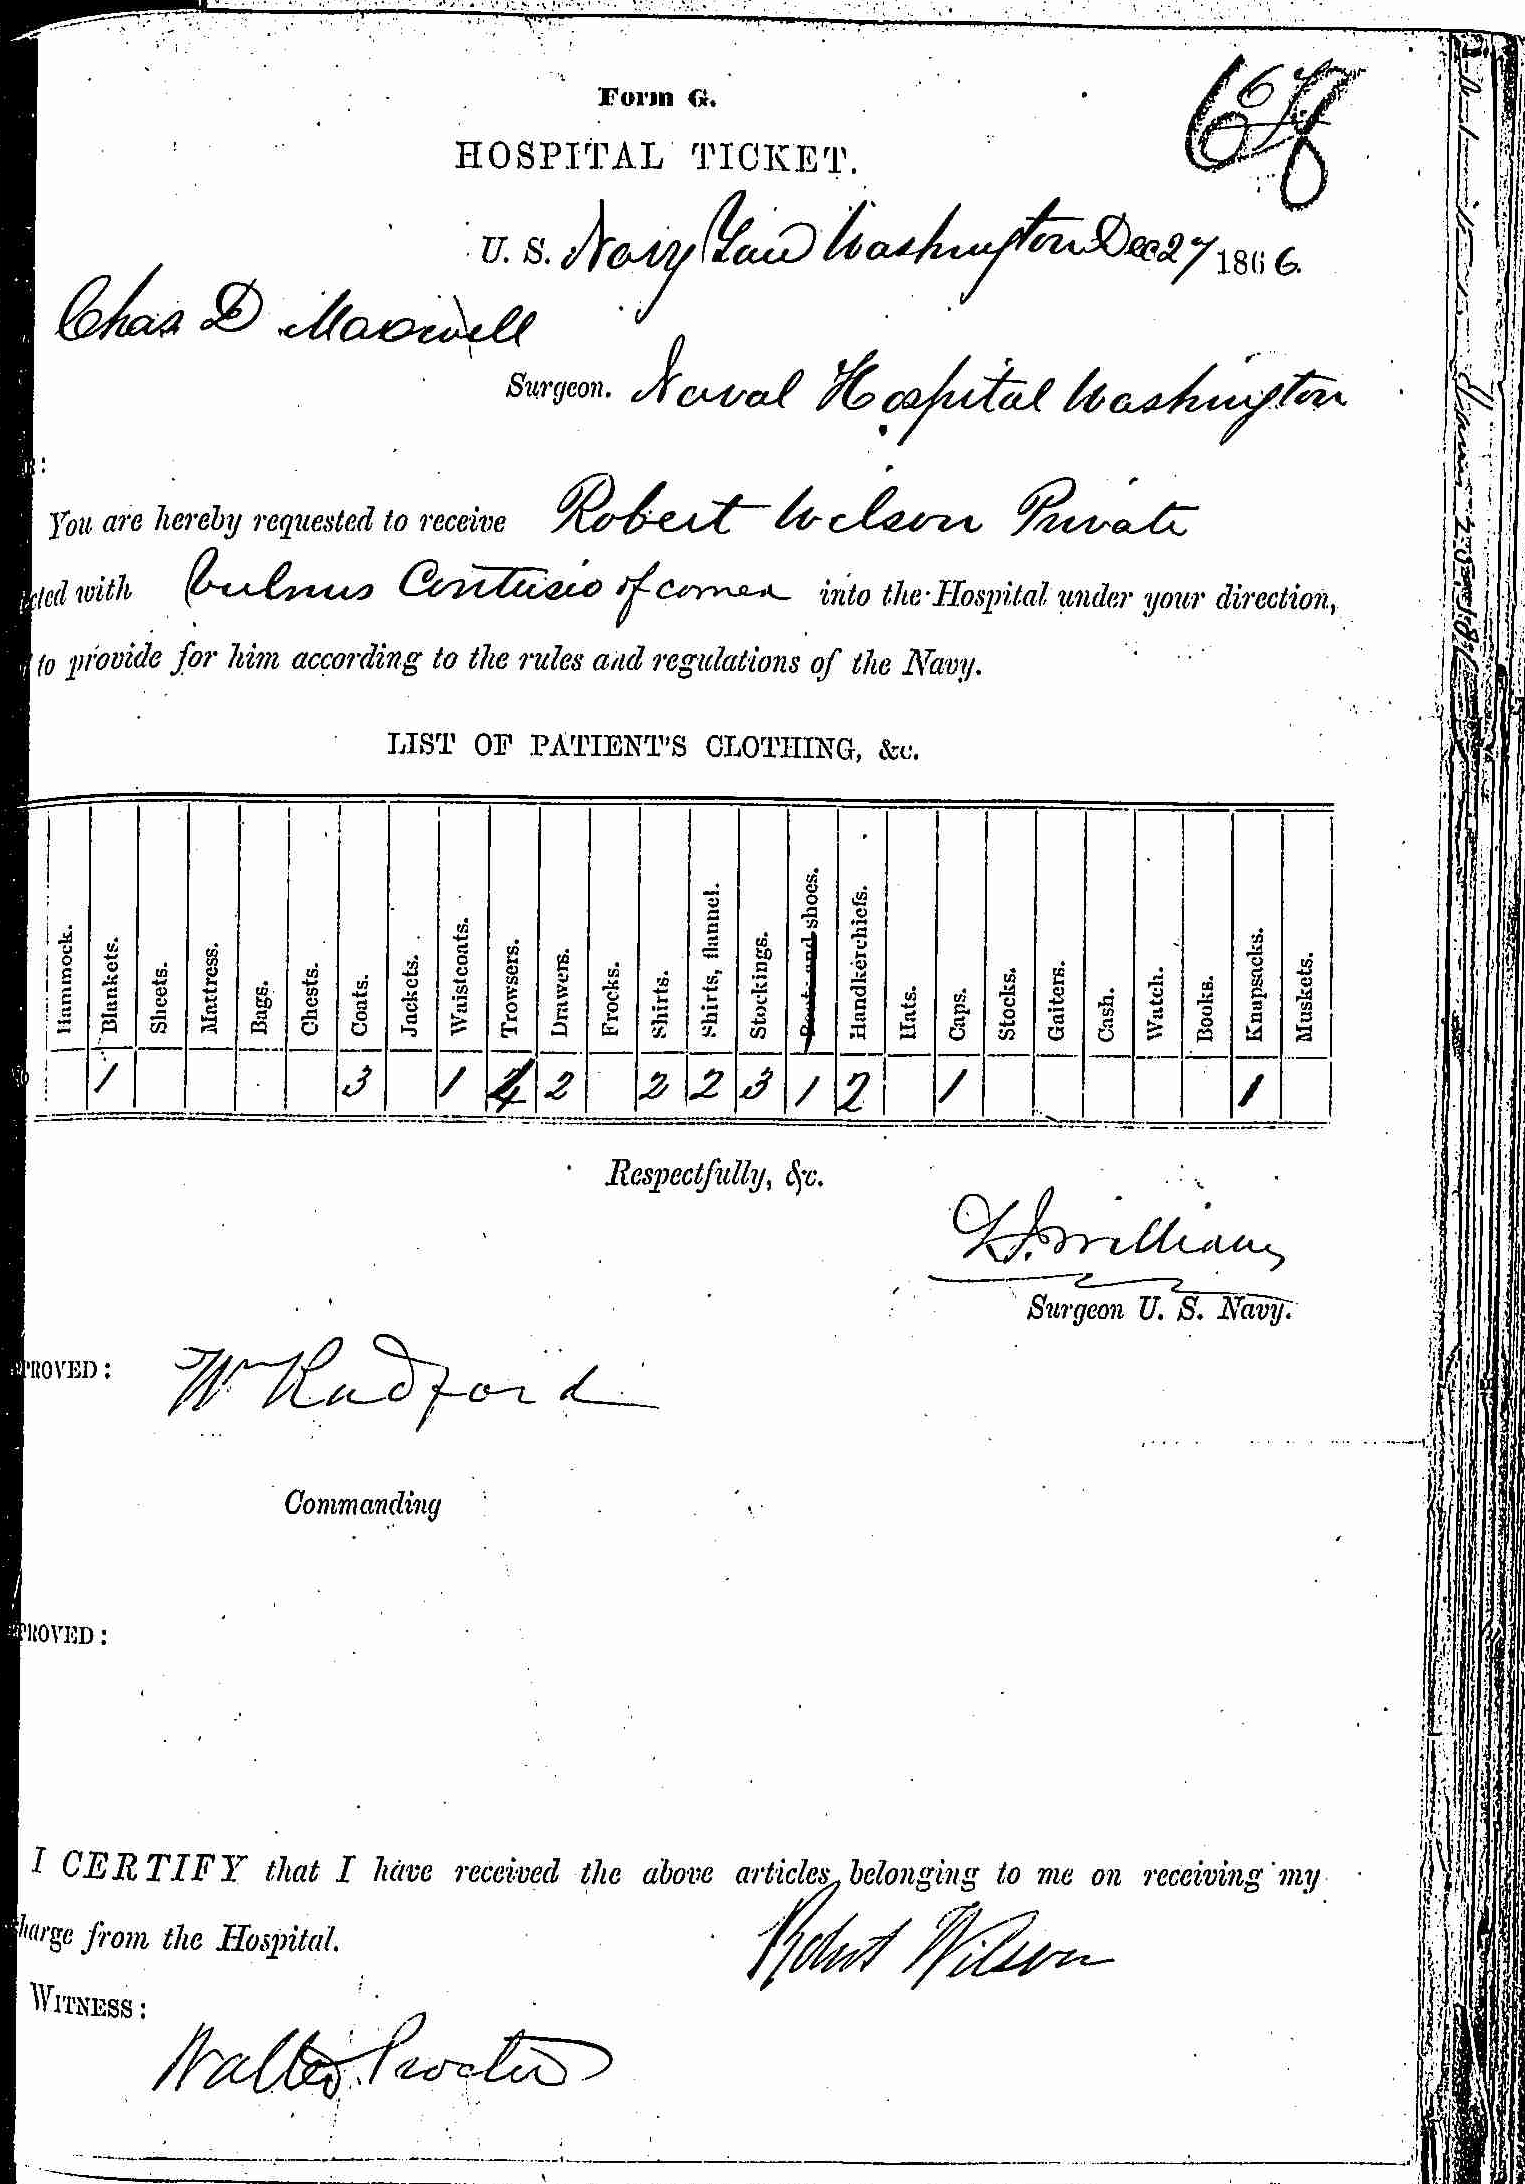 Form G.
HOSPITAL TICKET.
U. S. Navy Yard Washington Dec 27 1866.
Chas D Maxwell
Surgeon. Naval Hospital Washington
You are hereby requested to receive Robert Wilson Private
cted with Vulnus Contusio of cornea into the Hospital under your direction,
to provide for him according to the rules and regulations of the Navy.
LIST OF PATIENT'S CLOTHING, &c.
Hammock. Blankets. Sheets. Mattress. Bags. Chests. Coats. Jackets. Waistcoats. Trowsers. Drawers. Frocks. Shirts. Shirts, flannel. Stockings. Boots and shoes. Handkerchiefs. Hats. Caps. Stocks. Gaiters. Cash. Watch. Books. Knapsacks. Muskets.
1 3 1 4 2 2 2 3 1 2 1 1
Respectfully, &c.
Williams
Surgeon U. S. Navy.
PROVED: Wm Radford
Commanding
PROVED:
I CERTIFY that I have received the above articles belonging to me on receiving my
harge from the Hospital.
Robert Wilson
WITNESS:
Walter Procter